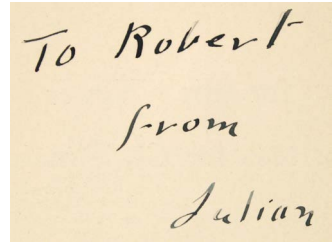 To Robert
from
Julian